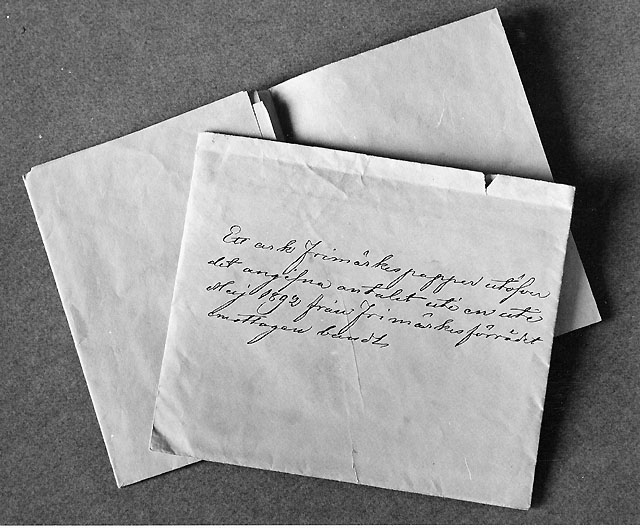 Ett ark Frimärkspapper utöfver
det angifna antalet uti en uti
Maj 1892 från Frimärksförrådet
emottagen bundt,